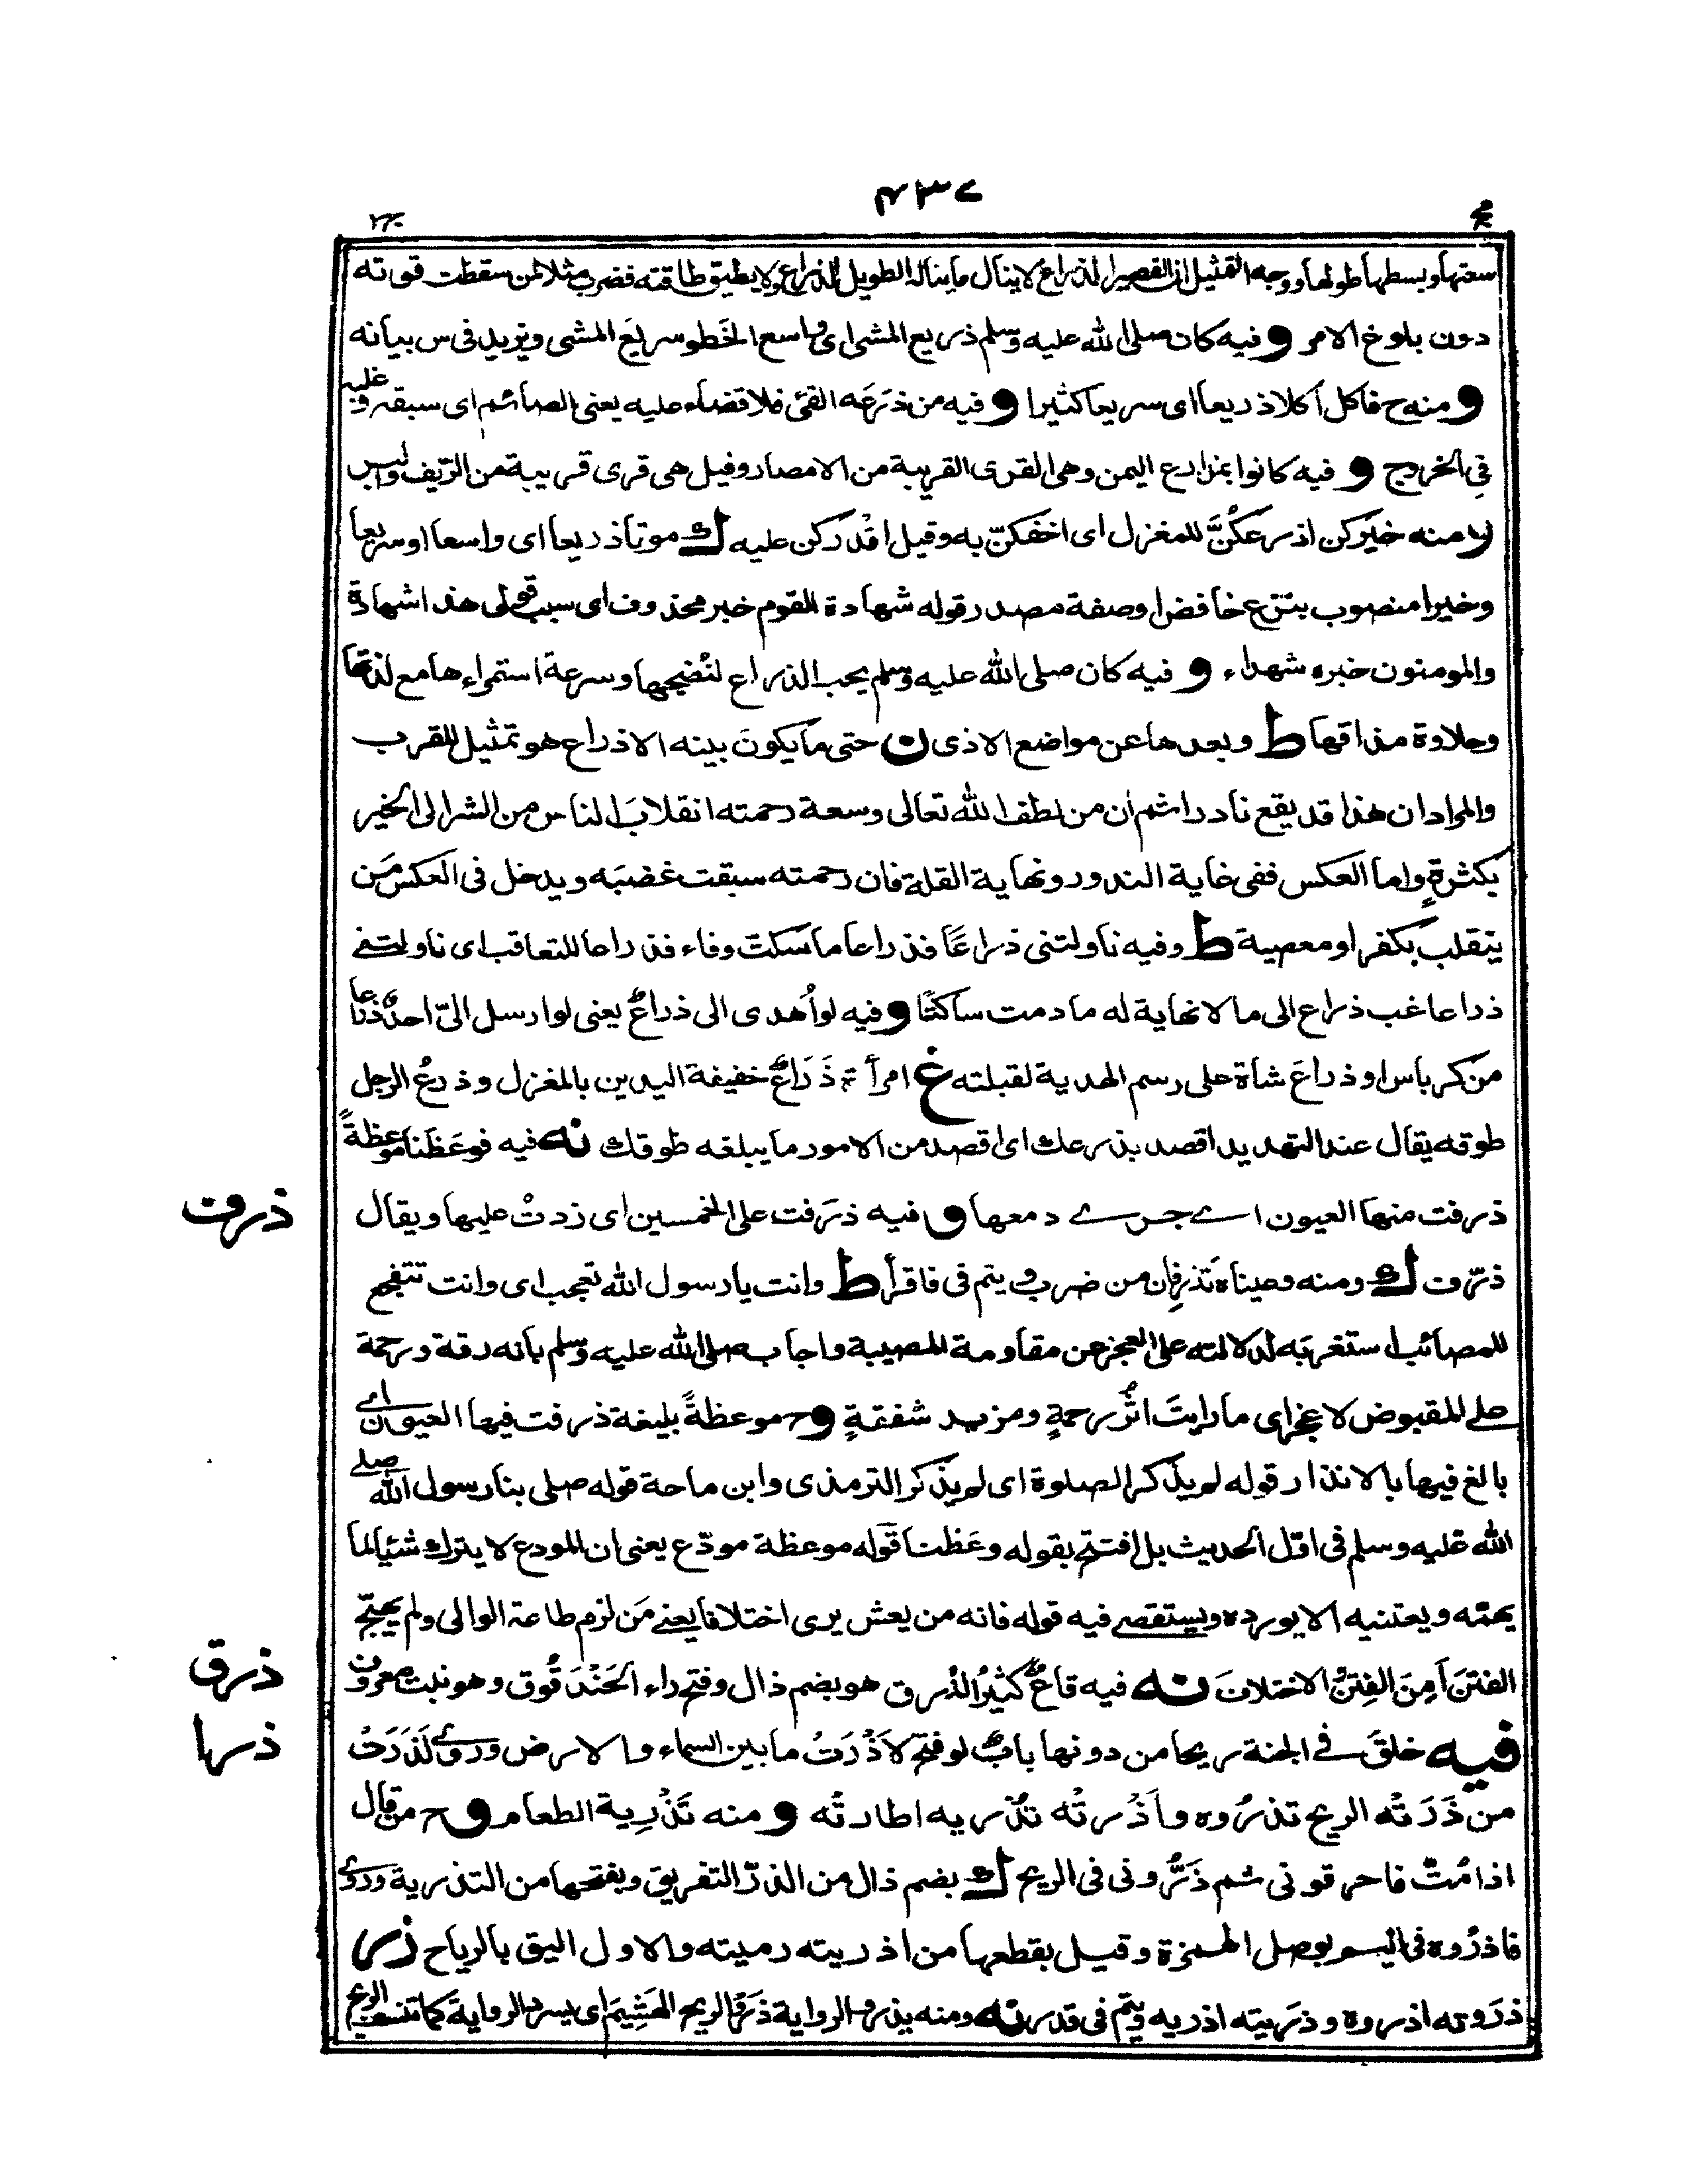 ٤٣٧
سعتها وبسطها طولها ووجه التمثيل ان القصير الذراع لا ينال ما يناله الطويل الذراع ولا يطيق طاقته فضرب مثلا لمن سقطت قوته
دون بلوغ الامر و فيه كان صلى الله عليه وسلم ذريع المشي اى واسع الخطو سريع المشى ويزيد فى س بيانه
و منه ح فاكل اكلا ذريعا اى سريعا كثيرا و فيه من ذرعه القئ فلا قضاء عليه يعنى الصائم اى سبقه وغلبه
فى الخروج و فيه كانوا بمزارع اليمن وهى القرى القريبة من الامصار وقيل هى قرى قريبة من الريف والبر
ن ومنه خيركن اذرعكنّ للمغزل اى اخفكنّ به وقيل اقدركن عليه ك موتا ذريعا اى واسعا او سريعا
وخيرا منصوب بنزع خافض او صفة مصدر قوله شهادة القوم خبر محذوف اى سبب قولى هذا شهادة
والمومنون خبره شهداء و فيه كان صلى الله عليه وسلم يحب الذراع لنضيجها وسرعة استمراءها مع لذتها
وحلاوة مذاقها ط وبعدها عن مواضع الاذى ن حتى ما يكون بينه الا ذراع هو تمثيل للقرب
والمراد ان هذا قد يقع نادرا ثم ان من لطف الله تعالى وسعة رحمته انقلاب الناس من الشر الى الخير
بكثرةٍ واما العكس ففى غاية الندور ونهاية القلة فان رحمته سبقت غضبه ويدخل فى العكس من
ينقلب بكفر او معصية ط وفيه ناولتنى ذراعًا فذراعا ما سكتّ وفاء فذراعا للتعاقب اى ناولتنے
ذراعا غب ذراع الى ما لا نهاية له ما دمت ساكتا و فيه لو اُهدى الى ذراعٌ يعنى لو ارسل الىّ احدٌ ذراعا
من كرباس او ذراع شاة على رسم الهدية لقبلته غ امرأة ذَرَاعٌ خفيفة اليدين بالمغزل وذرعُ الرجل
طوقه يقال عند التهديد اقصد بذرعك اى اقصد من الامور ما يبلغه طوقك نه فيه فوعظنا موعظةً
ذرفت منها العيون اے جرے دمعها و فيه ذرفت على الخمسين اى زدتُ عليها ويقال
ذرّفت ك ومنه وعيناه تذرِفان من ضرب ويتم فى فاقرأ ط وانت يا رسول الله تعجب اى وانت تتفجع
للمصائب استغربه لدلالته على العجز عن مقاومة المصيبة واجاب صلى الله عليه وسلم بانه رقة ورحمة
علے المقبوض لا عجز اى ما رايت اثرُ رحمةٍ ومزيد شفقةٍ و ح موعظةً بليغة ذرفت فيها العيون اے
بالغ فيها بالانذار قوله لم يذكر الصلوة اى لم يذكر الترمذى وابن ماجة قوله صلى بنا رسول الله صلے
الله عليه وسلم فى اوّل الحديث بل افتتح بقوله وعظنا قوله موعظة مودّع يعنى ان المودع لا يترك شيئا لما
يهمّه ويعتنيه الا يورده ويستقصے فيه قوله فانه من يعش يرى اختلافا يعنے من لزم طاعة الوالى ولم يهيّج
الفتن اَمِنَ الفِتنُ الاختلاف نه فيه قاعٌ كثيرُ الذُرق هو بضم ذال وفتح راء الحَنْدَقُوق وهو نبت معروف
فيه خلق فے الجنة ريحا من دونها بابٌ لو فتح لاذرَتُ ما بين السماء والارض وروى لَذَرَتْ
من ذَرَتْه الريح تذرُوه واَذْرتْه تُذْريه اطارتْه و منه تَذْرِية الطعام و ح من قال
اذا مُتّ فاحرقونى ثم ذَرُّونى فى الريح ك بضم ذال من الذرّ التفريق وبفتحها من التذرية وروى
فاذرُوه فى اليم بوصل الهمزة وقيل بقطعها من اذريته رميته والاول اليق بالرياح زر
ذروته اذروه وذريته اذريه ويتم فى قدر نه ومنه يذرو الرواية ذروَ الريح الهشيم اى يسرد الرواية كما تنسف الريح
ذرف
ذرق
ذرا